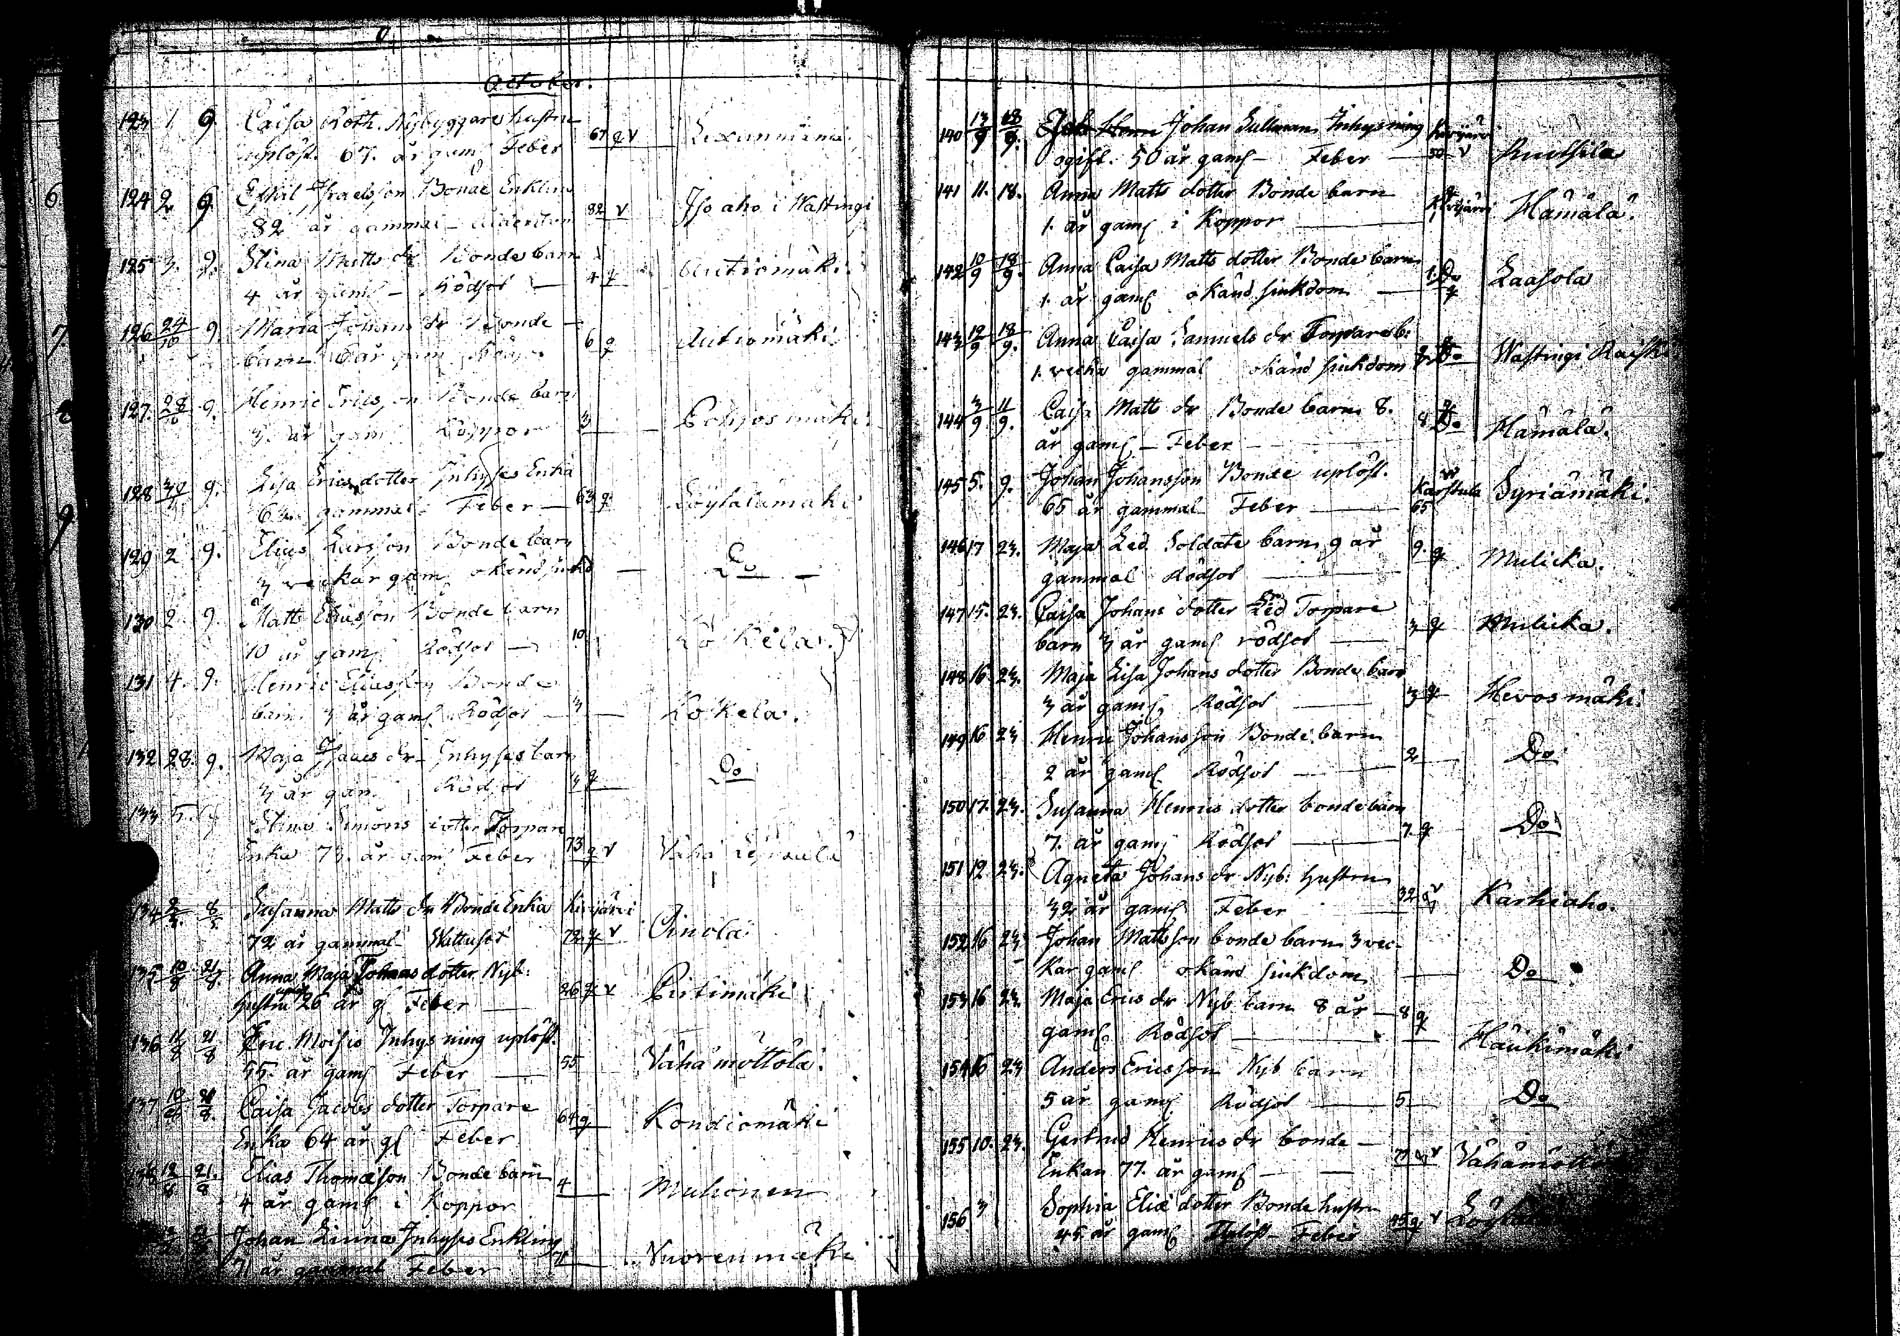 October.
123 1 9. Caisa Roth. Nybyggare hustru
uplöst. 67. år gam Feber 67 q v
124 2. 9. Israelsson Bonde Enkling
82 år gammal - ålderdom 82 v Iso aho i Wastingi
125 3. 9. Stina Matts dr Bonde barn
4 år gaml - Rödsot - 4 q Autiomäki.
126 24/10 9 Maria Johans dr Bonde -
barn 6 år gam Rödsot 6 q Autiomäki.
127. 28/10 9. Henric Ericsson Bonde barn
3. år gam Koppor 3 Pohjosmäki.
128 9. Lisa Ericsdotter Inhyses Enka
63. gammal. Feber - 63 q Löytalamäki
129 2 9. Elias Larsson Bonde barn
3 veckar gam okänd sinkd - Do -
130 2. 9. Matts Eliasson Bonde barn
10 år gam Rödsot - 10. Kokela.
131 4. 9. Henric Eliasson Bonde
barn 3 år gaml Rödsot - 3 Kokela.
132 28. 9. Maja Isaacs dr Inhyses barn
3 år gam Rödsot 3 q Do
133 5. Stina Simons dotter Torpare
Enka 73. år gaml Feber 73 q v Vähä
134 Susanna Matts dr Bonde Enka Kivijärvi
72 år gammal Wattusot 72 q v Oinola
135 10/8 21/8 Anna Maja Johans dotter Nyb:
hustru 26 år gl Feber 26 q v Pertimäki
136 11/8 21/8 Eric Moisio Inhysning uplöst.
55. år gaml Feber 55 Vähämöttölä.
137 10/8 21/8. Caisa Jacobs dotter Torpare
Enka 64 år gl Feber 64 q Kondiomäki
138 12/8 21/8 Elias Thomasson Bonde barn
4 år gaml i Koppor 4 Muhonen
Johan Linna Inhyses Enkling
71 år gammal Feber 71 Nuorenmäki
140 13/9 18/9. Johan Sullman Inhysning Kivijärvi
ogift. 50 år gaml - Feber - 50 v Ruotsila
141 11. 18. Anna Matts dotter Bonde barn Kivijärvi
1. år gaml i Koppor Hämälä.
142 10/9 18/9. Anna Caisa Matts dotter Bonde barn
1. år gaml okänd sinkdom - 1. Do q Laasola
143 12/9 18/9. Anna Caisa Samuels dr Torpare b:
1. vecka gammal okänd sinkdom q Do Wastingi
144 3/9 11/9. Caisa Matts dr Bonde barn 8.
år gaml - Feber - 8 q Do Hämälä.
145 5. 9. Johan Johansson Bonde uplöst. v Karstula
65 år gammal Feber 65 Syriämäki.
146 17 23. Maja Led Soldate barn 9 år 9. q
gammal Rödsot Mulicka.
147 15. 23. Caisa Johans dotter Led Torpare
barn 3 år gaml rödsot - 3 q Mulicka.
148 16. 23. Maja Lisa Johans dotter Bonde barn
3 år gaml Rödsot 3 q Hevosmäki.
149 16 23 Henric Johansson Bonde barn
2 år gaml Rödsot 2 Do
150 17. 23. Susanna Henrics dotter bonde barn
7. år gaml Rödsot 7. q Do
151 12 23. Agneta Johans dr Nyb: hustru
32 år gaml Feber 32 q v Karhiaho.
152 16 23 Johan Mattsson bonde barn 3 vec-
kar gaml okänd sinkdom - Do
153 16 23. Maja Erics dr Nyb barn 8 år - 8 q
gaml Rödsot - Häukimäki
154 16 23 Anders Ericsson Nyb barn
5 år gaml Rödsot 5 Do
155 10. 23. Gertrud Henrics dr bonde -
Enkan 77. år gaml - 77 q v
156 3 Sophia Eliæ dotter Bonde hustru
45 år gaml Uplöst - Feber 45 q v